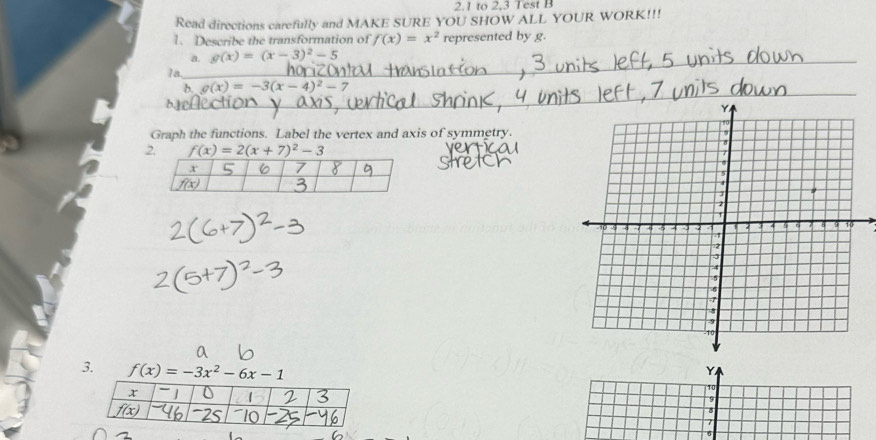 2.1 to 2,3 Test B
Read directions carefully and MAKE SURE YOU SHOW ALL YOUR WORK!!!
1. Describe the transformation of f(x) = x² represented by g.
a. g(x) = (x − 3)² − 5
1a. horizontal translation, 3 units left, 5 units down
b. g(x) = −3(x − 4)² − 7
reflection y axis, vertical shrink, 4 units left, 7 units down
Graph the functions. Label the vertex and axis of symmetry.
vertical stretch
2. f(x) = 2(x + 7)² − 3
x 5 6 7 8 9
f(x) 3
2(6+7)²-3
2(5+7)²-3
a b
3. f(x) = −3x² − 6x − 1
x -1 0 1 2 3
f(x) -46 -25 -10 -25 -46
Y
Y